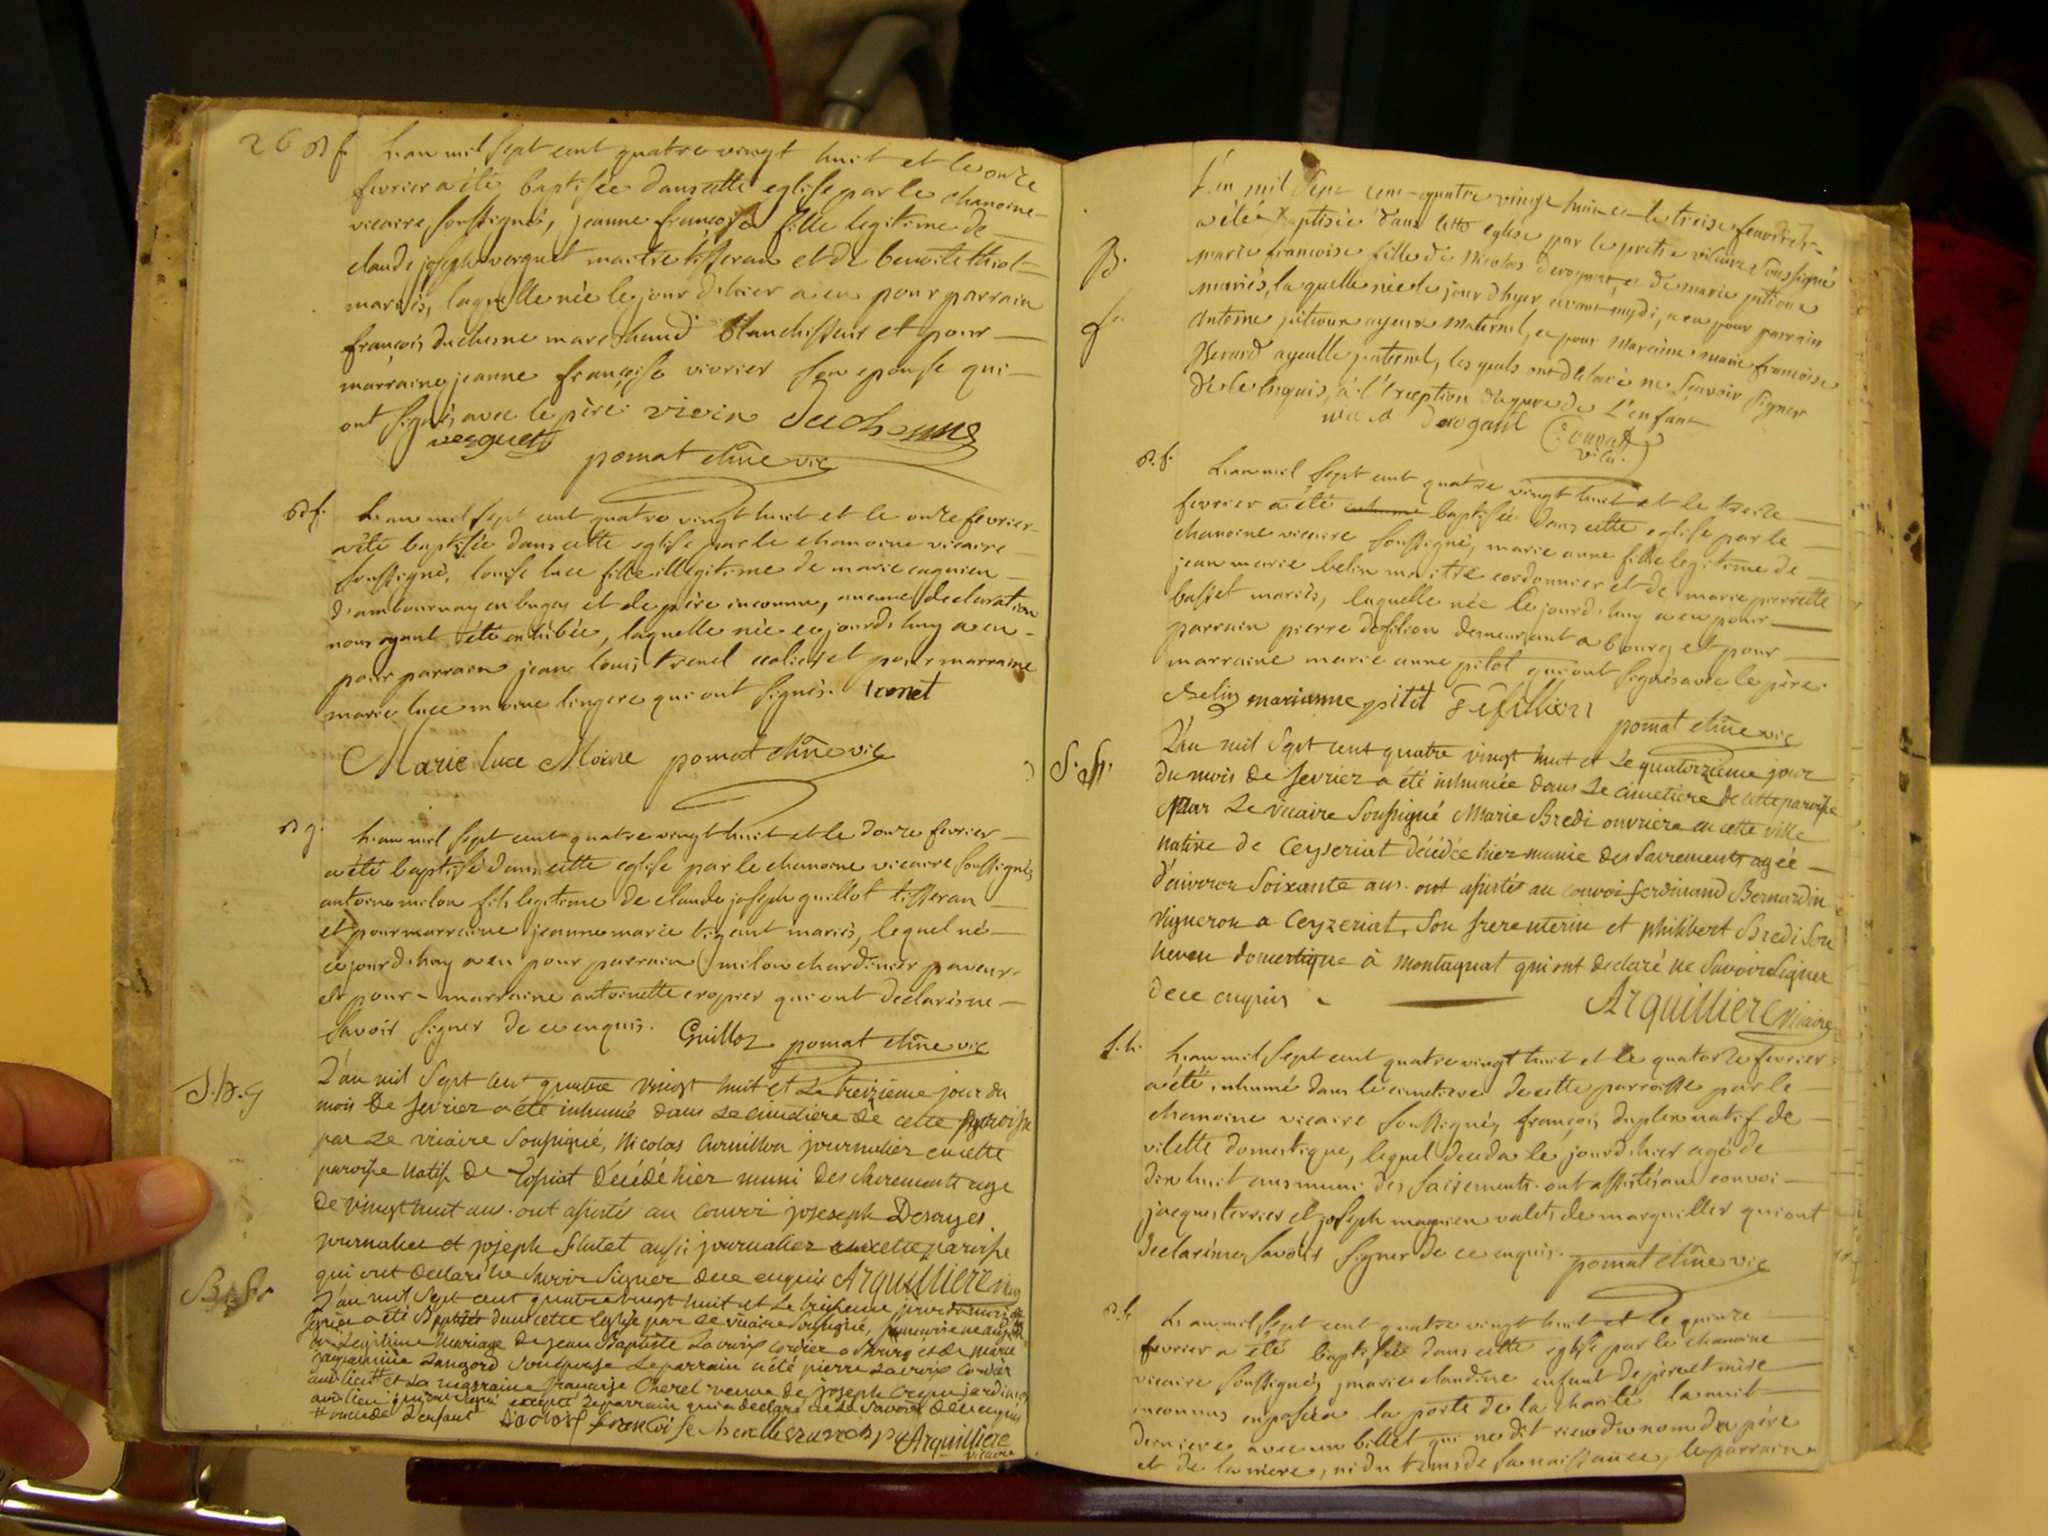 26 B f. L'an mil sept cent quatre vingt huit et le onze
fevrier a été baptisée dans cette eglise par le chanoine
vicaire soussigné, jeanne françoise fille legitime de
claude joseph verguet maitre tisseran et de benoite
mariés, laquelle née le jour d'hier a eu pour parrain
françois duchesne marchand blanchisseur et pour
marraine jeanne françoise vivier son epouse qui
ont signés avec le père. vivier duchesne
verguet
pomat chne vic
B f. L'an mil sept cent quatre vingt huit et le onze fevrier
a été baptisée dans cette eglise par le chanoine vicaire
soussigné, louise luce fille illegitime de marie
d'ambournay en bugey et de père inconnu, aucune declaration
nous ayant été exhibée, laquelle née cejourd'huy a eu
pour parrain jean louis et pour marraine
marie luce moine lingere qui ont signés.
Marie luce Moine pomat chne vic
B g. L'an mil sept cent quatre vingt huit et le douze fevrier
a été baptisé dans cette eglise par le chanoine vicaire soussigné,
antoine milon fils legitime de claude joseph guillot tisseran
et pour marraine jeanne marie mariés, lequel né
cejourd'huy a eu pour parrain milon chardinier
et pour marraine antoinette qui ont declarés ne
savoir signer de ce enquis. Guillot pomat chne vic
S. h. g L'an mil sept cent quatre vingt huit et le treizieme jour du
mois de fevrier a été inhumé dans le cimetiere de cette paroisse
par le vicaire soussigné, Nicolas journalier en cette
paroisse natif de décédé hier muni des sacrements age
de vingt huit ans. ont assistés au convoi joseph
journalier et joseph aussi journalier en cette paroisse
qui ont declaré ne savoir signer de ce enquis Arquilliere
L'an mil sept cent quatre vingt huit et le treizieme jour du mois de
fevrier a été Baptisée dans cette eglise par le vicaire soussigné,
legitime mariage de jean Baptiste Lacroix cordier a Bourg et de marie
son epouse Le parrain a été pierre Lacroix cordier
et La marraine françoise veuve de joseph
excepté qui a declaré ne savoir de ce enquis
oncle de L'enfant Lacroix Arquilliere
vicaire
L'an mil sept cent quatre vingt huit et le treise
B. a été baptisée dans cette eglise par le pretre vicaire soussigné
marie francoise fille de Nicolas et de marie
mariés, la quelle née le jour d'hyer avant mydi, a eu pour parrain
f. Antoine ayeux maternel, et pour Maraine marie francoise
ayeulle paternel, les quels ont declaré ne sçavoir signer
de ce enquis, à l'exception du pere de L'enfant
vic.
B. f. L'an mil sept cent quatre vingt huit et le treize
fevrier a été baptisée dans cette eglise par le
chanoine vicaire soussigné, marie anne fille legitime de
jean marie belin maitre cordonnier et de marie pierrette
basset mariés, laquelle née le jourd'huy a eu pour
parrain pierre demeurant a bourg et pour
marraine marie anne pitot qui ont signés avec le père.
Belin marianne pitot
pomat chne vic
S. h. L'an mil sept cent quatre vingt huit et le quatorzieme jour
du mois de fevrier a été inhumée dans le cimetiere de cette paroisse
par le vicaire soussigné Marie Bredi ouvriere en cette ville
native de Ceyseriat décédée hier munie des sacrements agée
d'environ soixante ans. ont assistés au convoi ferdinand Bernardin
vigneron a Ceyzeriat, son frere uterin et philibert Bredi son
neveu domestique à montagnat qui ont declaré ne savoir signer
de ce enquis. Arquilliere vicaire
s. h. L'an mil sept cent quatre vingt huit et le quatorze fevrier
a été inhumé dans le cimetiere de cette parroisse par le
chanoine vicaire soussigné, françois natif de
vilette domestique, lequel deceda le jour d'hier agé de
dix huit ans muni des sacrements. ont assistés au convoi
jacques terrier et joseph magnien valets de marguillier qui ont
declarés ne savoir signer de ce enquis. pomat chne vic
L'an mil sept cent quatre vingt huit et le quinze
fevrier a été baptisée dans cette eglise par le chanoine
vicaire soussigné, marie claudine enfant de père et mère
inconnus exposée a la porte de la charité la nuit
derniere avec un billet qui ne dit rien du nom du père
et de la mere, ni du tems de sa naissance, le parrain